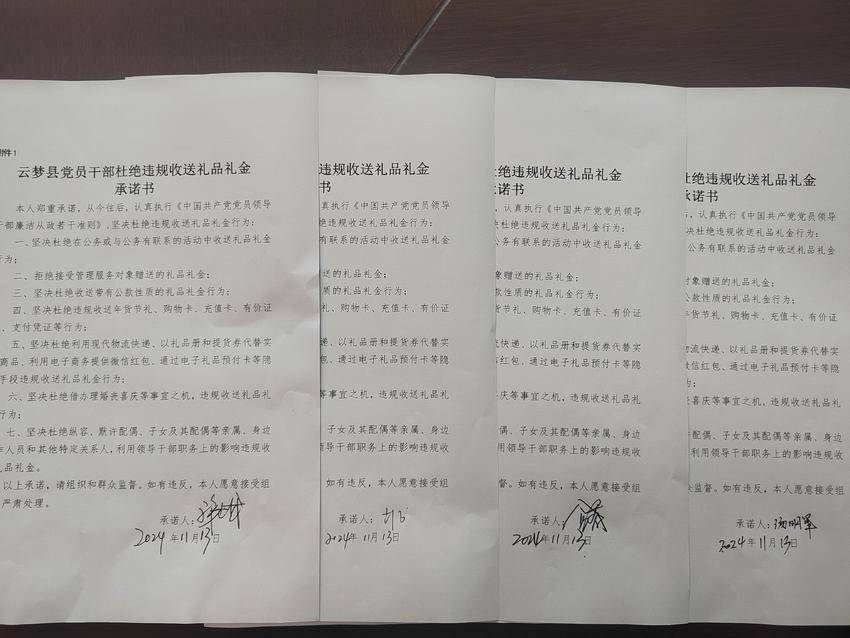 附件1
云梦县党员干部杜绝违规收送礼品礼金
承诺书
本人郑重承诺，从今往后，认真执行《中国共产党党员领导
干部廉洁从政若干准则》，坚决杜绝违规收送礼品礼金行为：
一、坚决杜绝在公务或与公务有联系的活动中收送礼品礼金
行为；
二、拒绝接受管理服务对象赠送的礼品礼金；
三、坚决杜绝收送带有公款性质的礼品礼金行为；
四、坚决杜绝违规收送年货节礼、购物卡、充值卡、有价证
、支付凭证等行为；
五、坚决杜绝利用现代物流快递、以礼品册和提货券代替实
商品、利用电子商务提供微信红包、通过电子礼品预付卡等隐
手段违规收送礼品礼金行为；
六、坚决杜绝借办理婚丧喜庆等事宜之机，违规收送礼品礼
行为；
七、坚决杜绝纵容、默许配偶、子女及其配偶等亲属、身边
作人员和其他特定关系人，利用领导干部职务上的影响违规收
礼品礼金。
以上承诺，请组织和群众监督。如有违反，本人愿意接受组
严肃处理。
承诺人：
2024年11月13日
违规收送礼品礼金
书
真执行《中国共产党党员领导
绝违规收送礼品礼金行为：
有联系的活动中收送礼品礼金
送的礼品礼金；
质的礼品礼金行为；
礼、购物卡、充值卡、有价证
递、以礼品册和提货券代替实
红包、通过电子礼品预付卡等隐
等事宜之机，违规收送礼品礼
、子女及其配偶等亲属、身边
领导干部职务上的影响违规收
。如有违反，本人愿意接受组
承诺人：
2024年11月13日
杜绝违规收送礼品礼金
承诺书
，认真执行《中国共产党党员领导
决杜绝违规收送礼品礼金行为：
公务有联系的活动中收送礼品礼金
象赠送的礼品礼金；
款性质的礼品礼金行为；
货节礼、购物卡、充值卡、有价证
流快递、以礼品册和提货券代替实
信红包、通过电子礼品预付卡等隐
喜庆等事宜之机，违规收送礼品礼
偶、子女及其配偶等亲属、身边
用领导干部职务上的影响违规收
监督。如有违反，本人愿意接受组
承诺人：
2024年11月13日
杜绝违规收送礼品礼金
承诺书
，认真执行《中国共产党党员领导
决杜绝违规收送礼品礼金行为：
公务有联系的活动中收送礼品礼金
对象赠送的礼品礼金；
公款性质的礼品礼金行为；
年货节礼、购物卡、充值卡、有价证
物流快递、以礼品册和提货券代替实
微信红包、通过电子礼品预付卡等隐
丧喜庆等事宜之机，违规收送礼品礼
配偶、子女及其配偶等亲属、身边
利用领导干部职务上的影响违规收
众监督。如有违反，本人愿意接受组
承诺人：汤明军
2024年11月13日